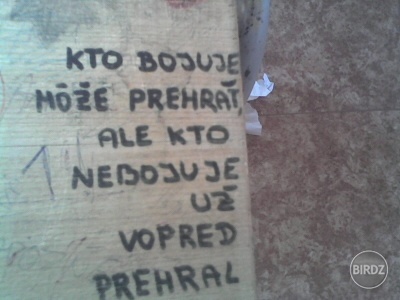 KTO BOJUJE
MÔŽE PREHRAŤ,
ALE KTO
NEBOJUJE
UŽ
VOPRED
PREHRAL
BIRDZ